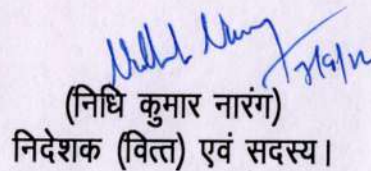 (निधि कुमार नारंग)
निदेशक (वित्त) एवं सदस्य।